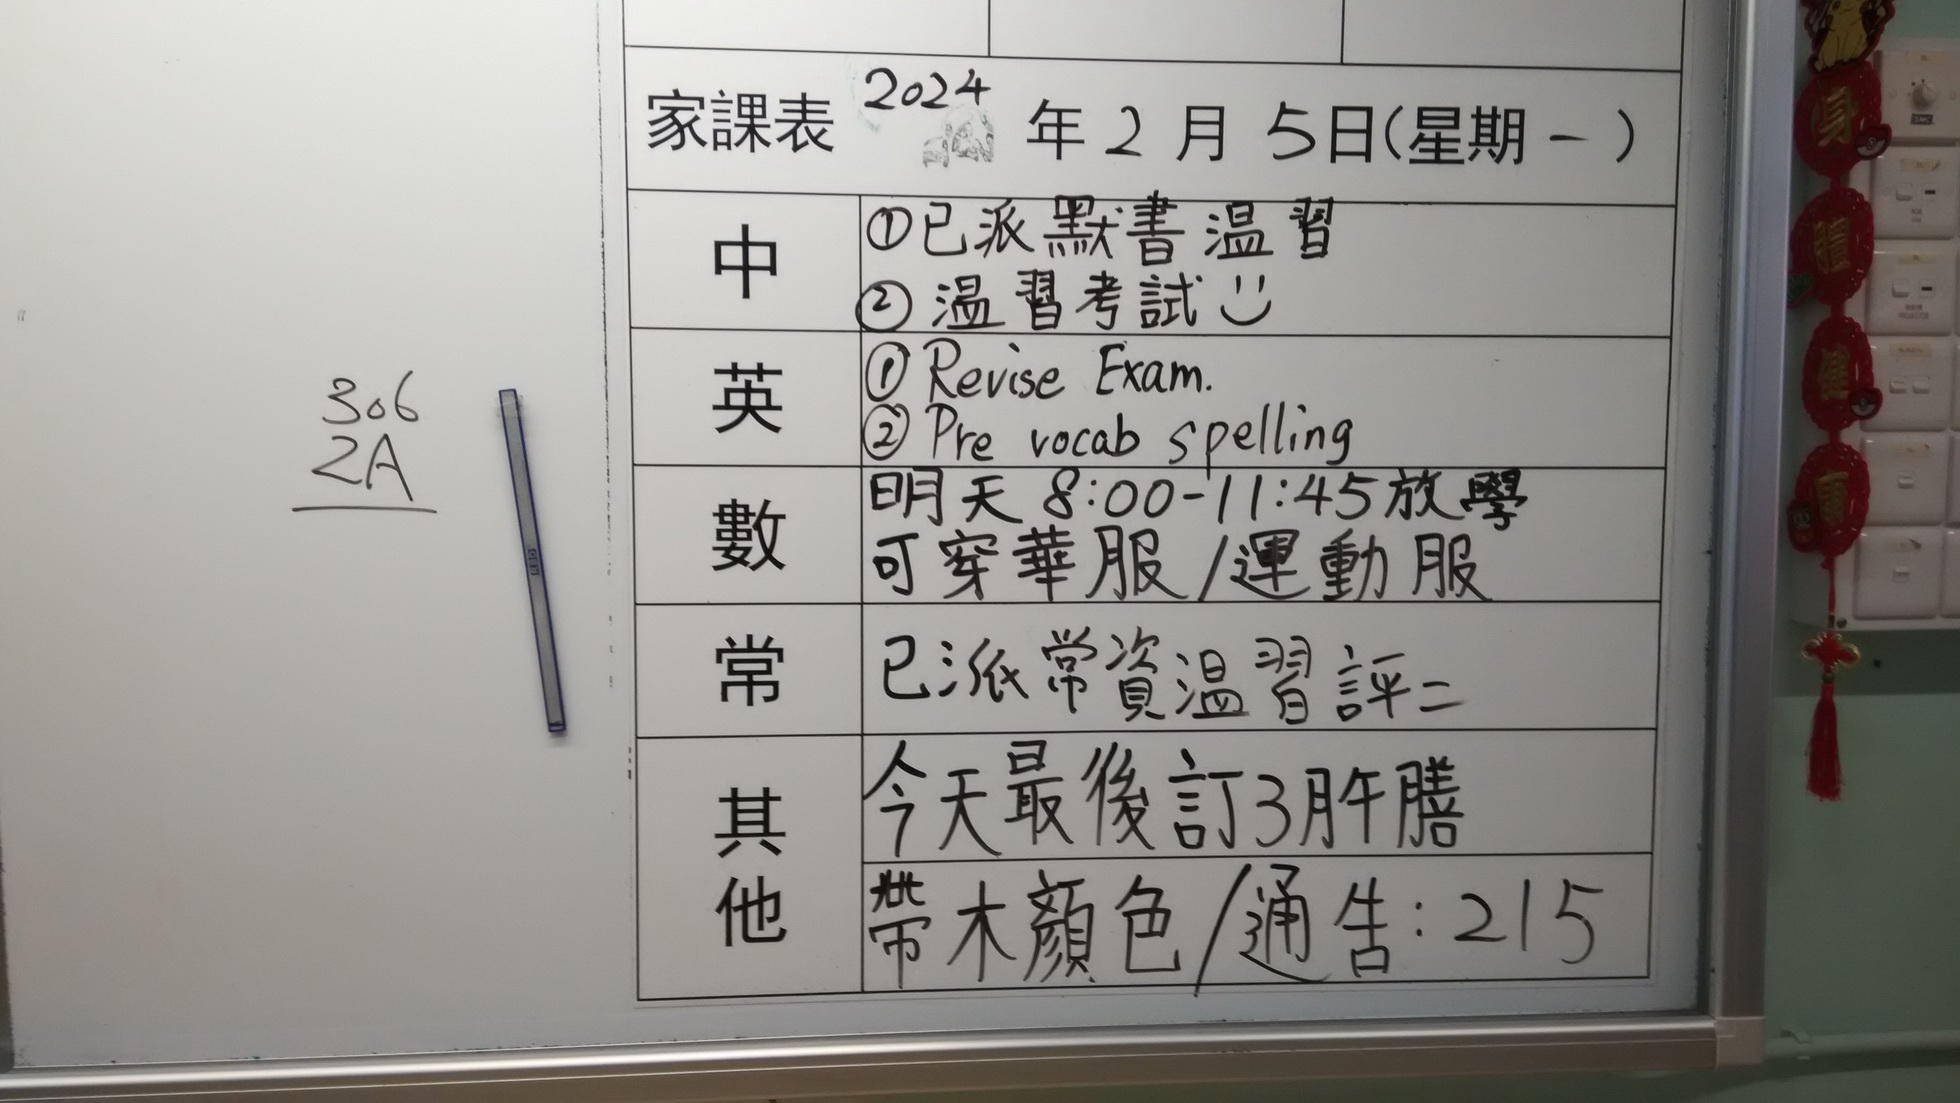 家課表 2024年2月5日(星期一)
中
①已派默書溫習
②溫習考試
英
① Revise Exam.
② Pre vocab spelling
306
2A
數
明天 8:00-11:45放學
可穿華服/運動服
常
已派常資溫習評二
其他
今天最後訂3月午膳
帶木顏色/通告:215
身
體
健